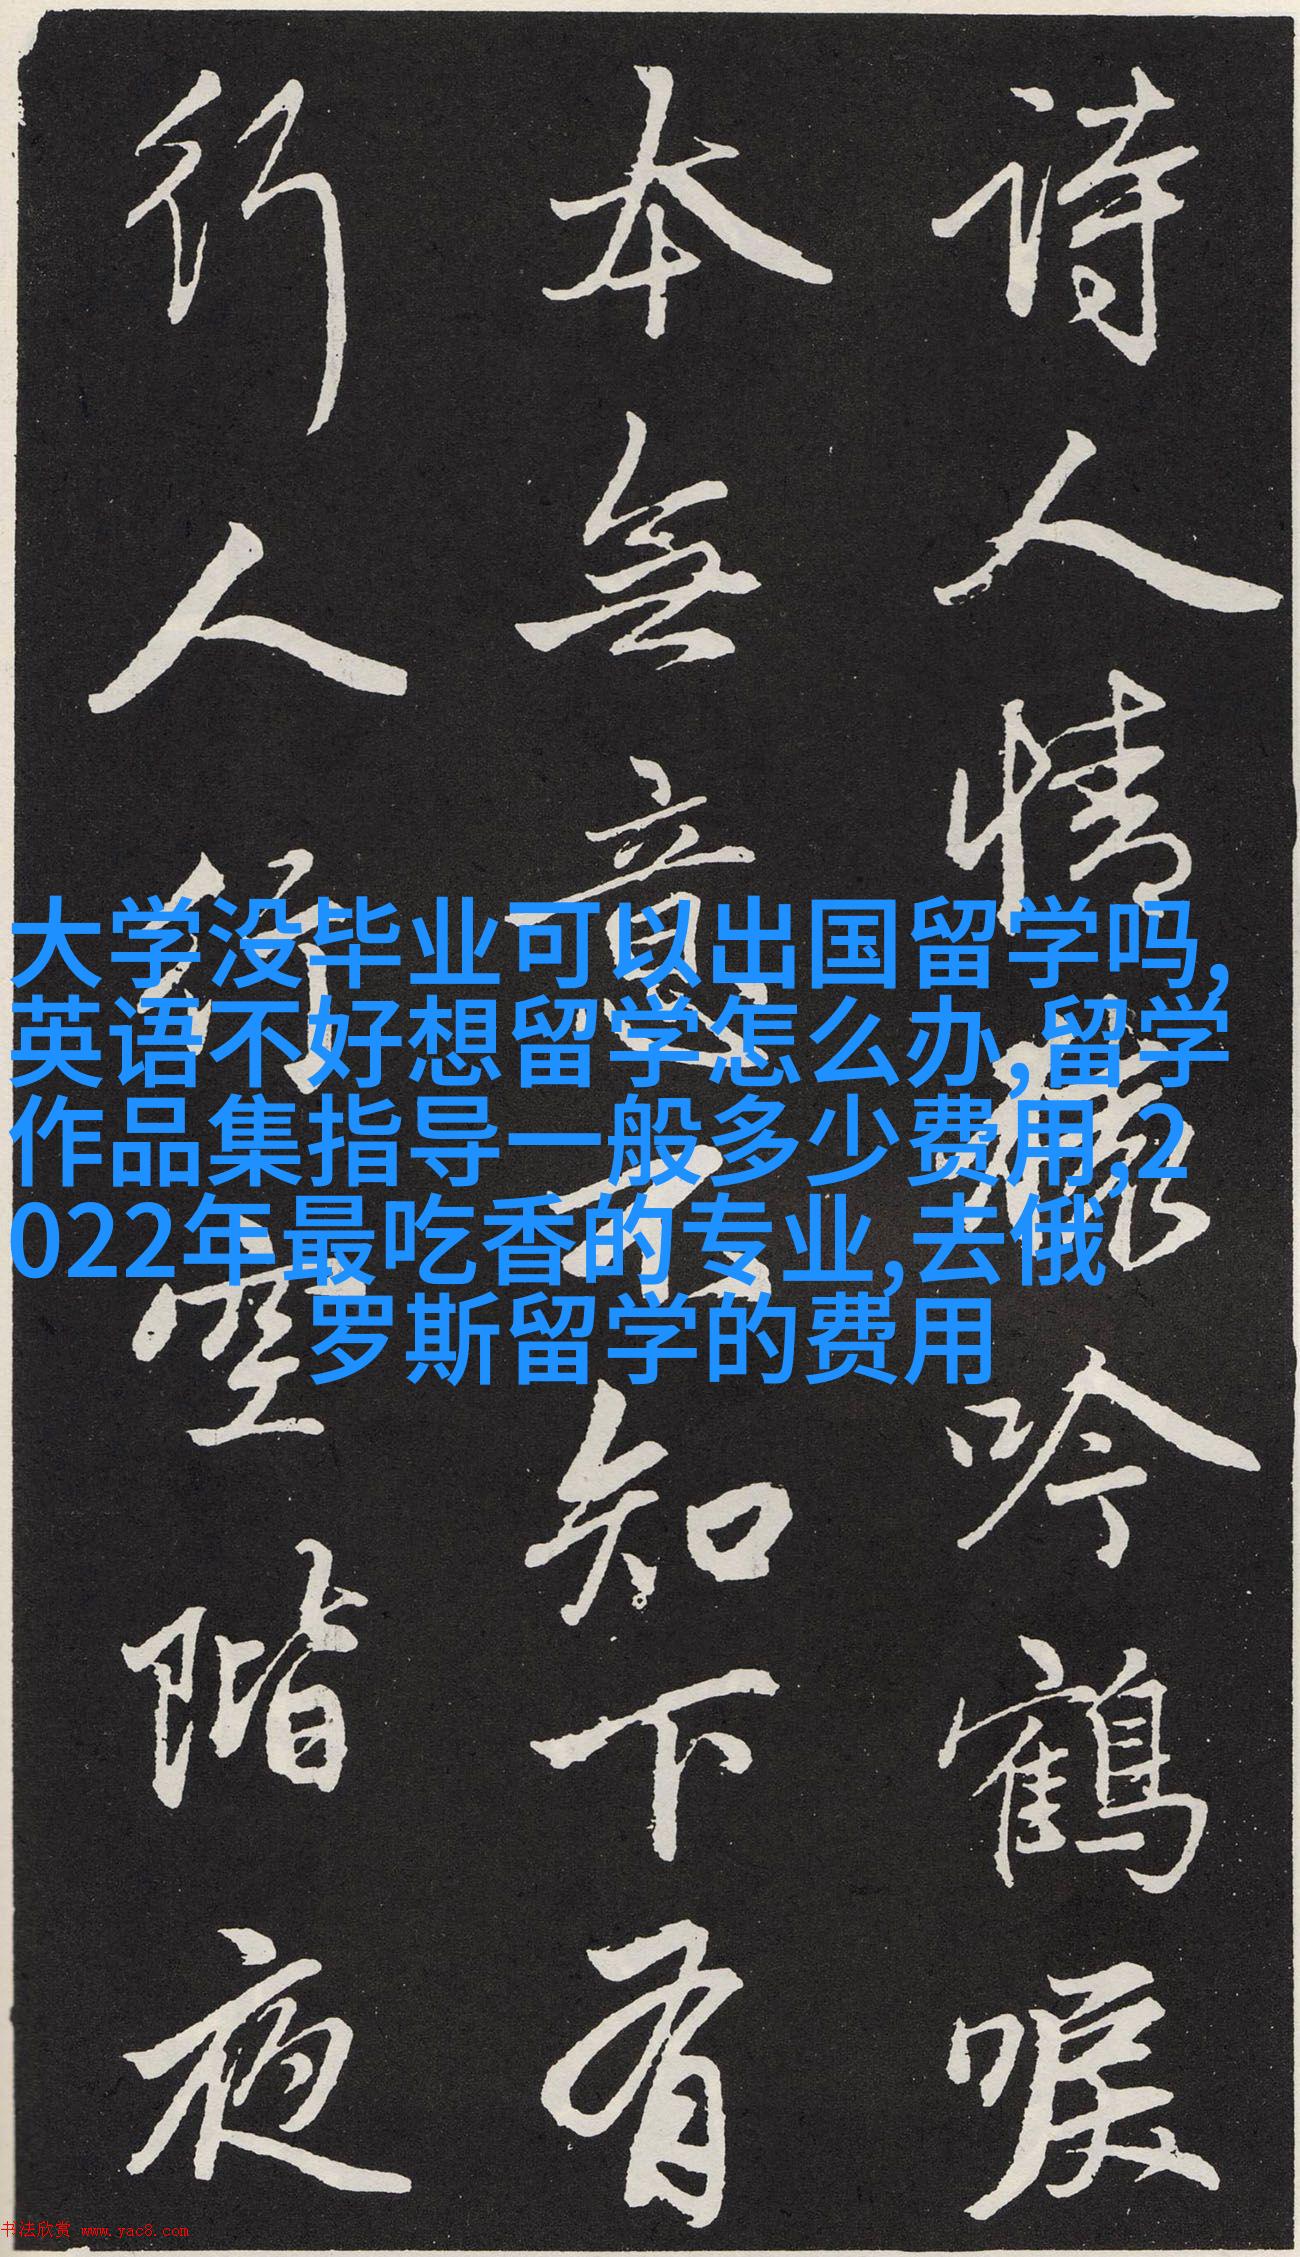 诗人情吟鶴唳
本無意知下有
行人行空階夜
大学没毕业可以出国留学吗,
英语不好想留学怎么办,留学
作品集指导一般多少费用,2
022年最吃香的专业,去俄
罗斯留学的费用
书法欣赏 www.yac8.com